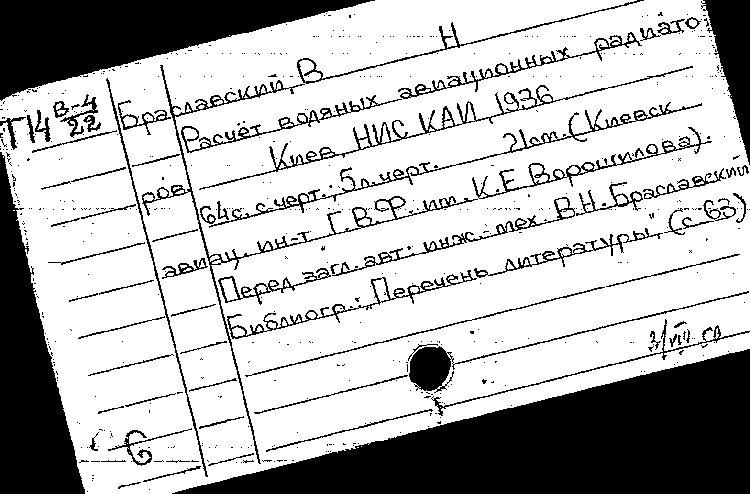 Т14 В-4/22
Браславский, В Н
Расчёт водяных авиационных радиато
ров. Киев, НИС КАИ, 1936
64с. с черт.; 5 л. черт. 21 см. (Киевск.
авиац. ин-т Г.В.Ф. им. К.Е Ворошилова).
Перед загл. авт: инж.-мех. В.Н. Браславский
Библиогр.: "Перечень литературы", (с 63)
3/VIII 50
С